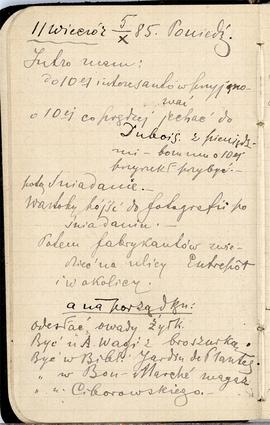 11 wieczór 5/X 85. Poniedz.
Jutro mam:
do 10 ej interesantów przyjmo-
wać
o 10 ej co prędzej jechać do
Dubois. z pieniędz-
mi - bo mu o 10 ej
przyrzekł. przybyć. -
potem śniadanie. -
Wartoby pójść do fotografii po
śniadaniu. -
Potem fabrykantów zwie-
dzić na ulicy Entrepôt
i w okolicy.
a nad porządku:
odesłać owady Żyśk.
Być u A. Wagi z broszurką.
Być w Bibl. Jardin de Plantes
" w Bon-Marché magaz.
" u Ciborowskiego -